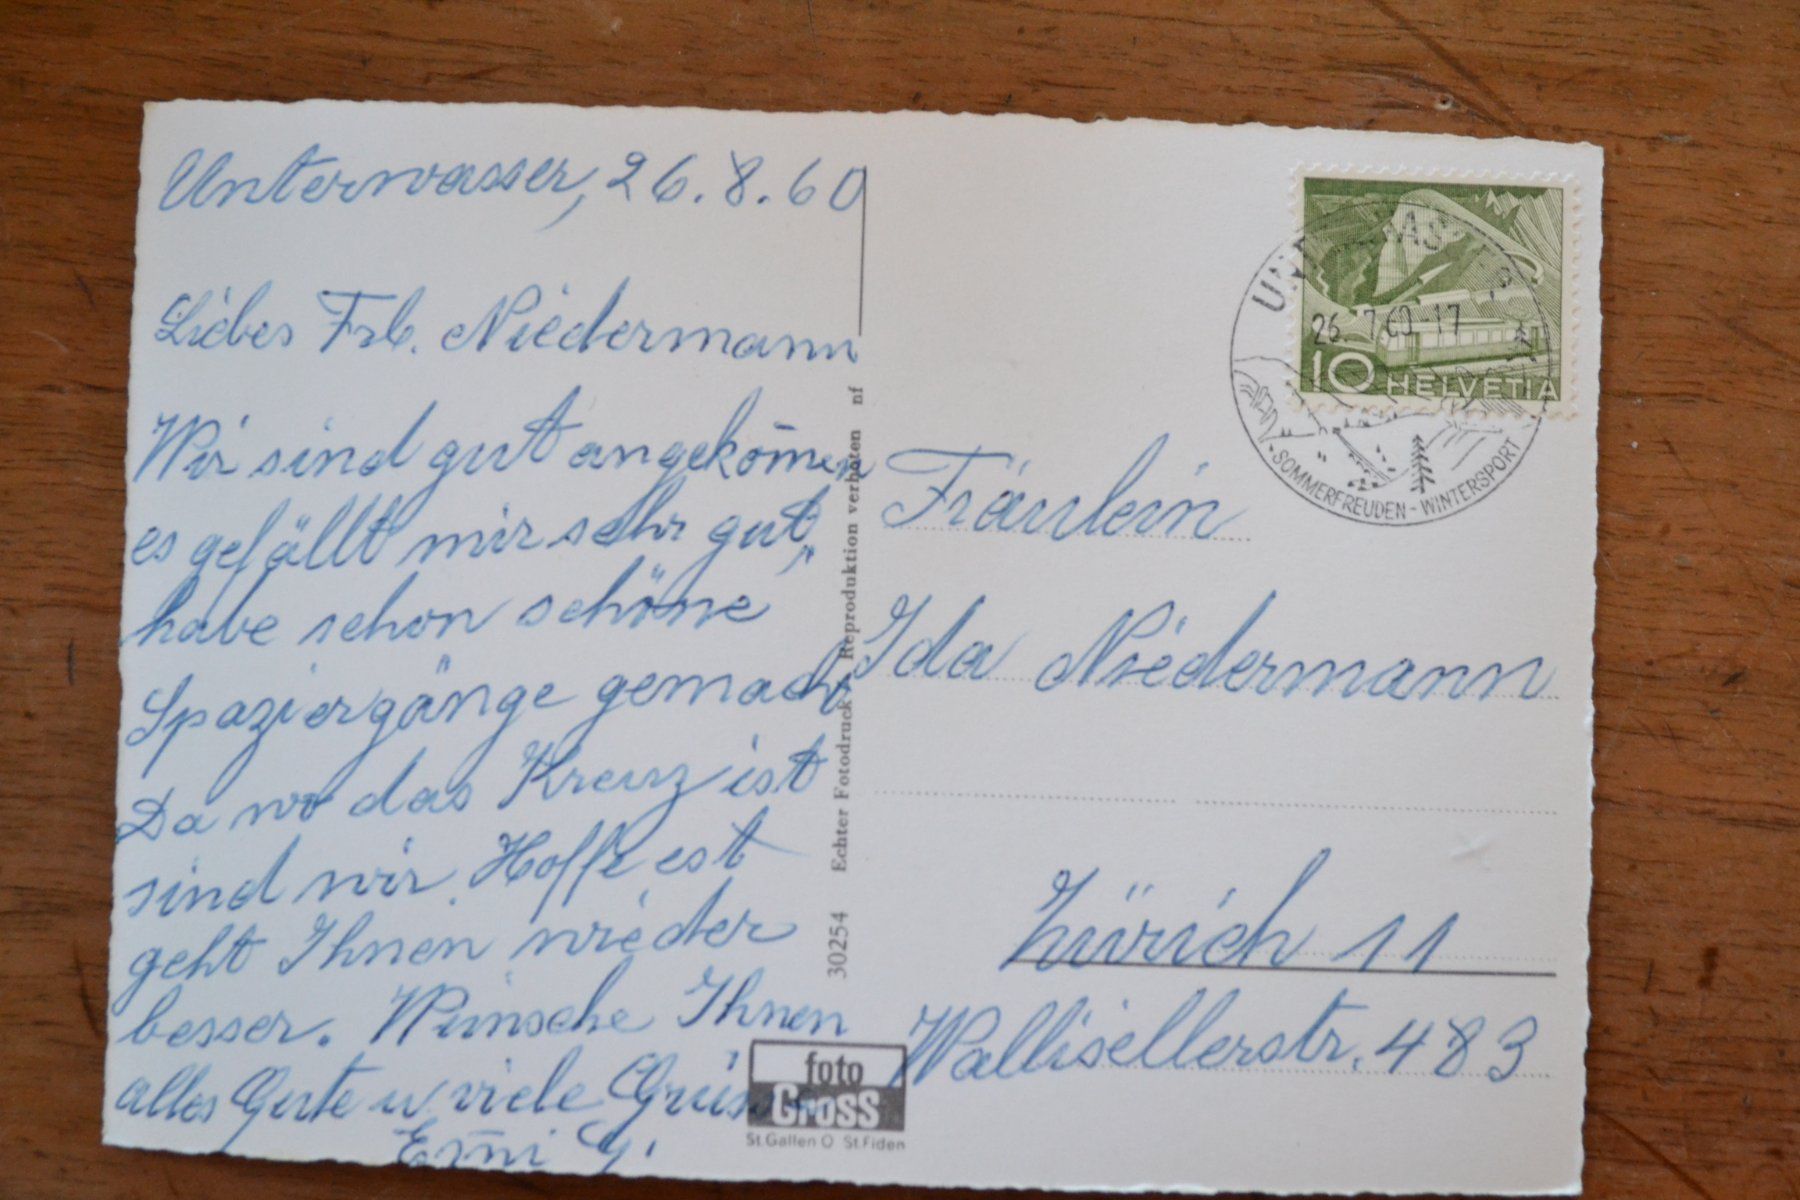 Unterwasser, 26.8.60
Liebes Frl. Niedermann
Wir sind gut angekom̄en
es gefällt mir sehr gut,
habe schon schöne
Spaziergänge gemacht
Da wo das Kreuz ist
sind wir. Hoffe est
geht Ihnen wieder
besser. Wünsche Ihnen
alles Gute u viele Grüsse
Em̄i G.
30254 Echter Fotodruck Reproduktion verboten nf
foto
Gross
St.Gallen O St.Fiden
26. 7 60-17
SOMMERFREUDEN - WINTERSPORT
10 HELVETIA
Fräulein
Ida Niedermann
Zürich 11
Wallisellerstr. 483